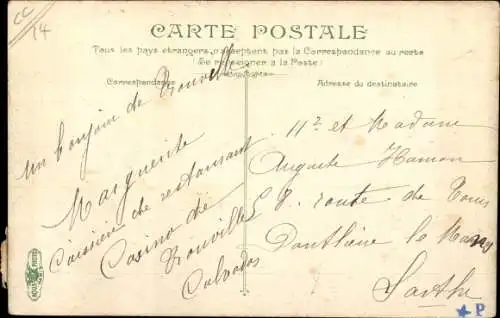 CC
14
CARTE POSTALE
Tous les pays étrangers n'acceptent pas la Correspondance au recto
Se renseigner à la Poste
Correspondance
Adresse du destinataire
Un bonjour de Trouville
Marguerite
Caissière de restaurant
Casino de
Trouville
Calvados
Mr et Madame
Auguste Hamon
route de Tours
Pontlieue le Mans
Sarthe
P